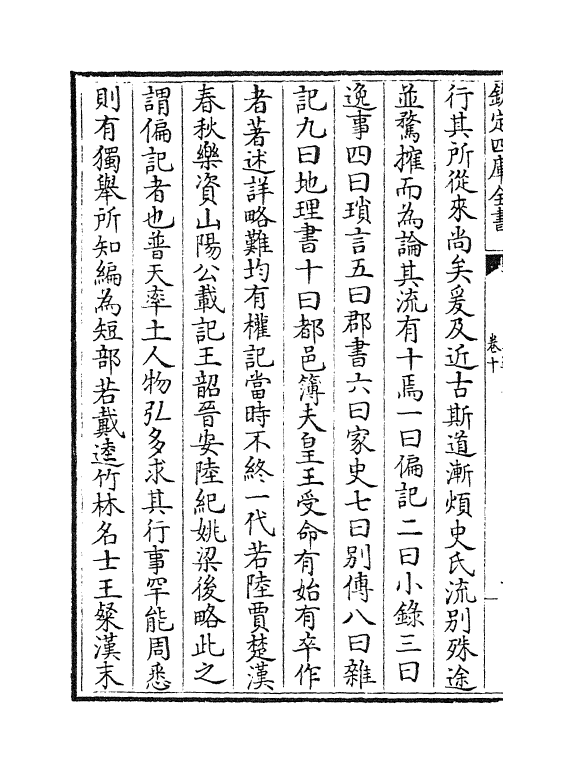 欽定四庫全書
卷十
行其所從來尚矣爰及近古斯道漸煩史氏流别殊途
並騖㩁而為論其流有十焉一曰偏記二曰小錄三曰
逸事四曰瑣言五曰郡書六曰家史七曰别傳八曰雜
記九曰地理書十曰都邑簿夫皇王受命有始有卒作
者著述詳略難均有權記當時不終一代若陸賈楚漢
春秋樂資山陽公載記王韶晉安陸紀姚梁後略此之
謂偏記者也普天率土人物弘多求其行事罕能周悉
則有獨舉所知編為短部若戴逵竹林名士王粲漢末